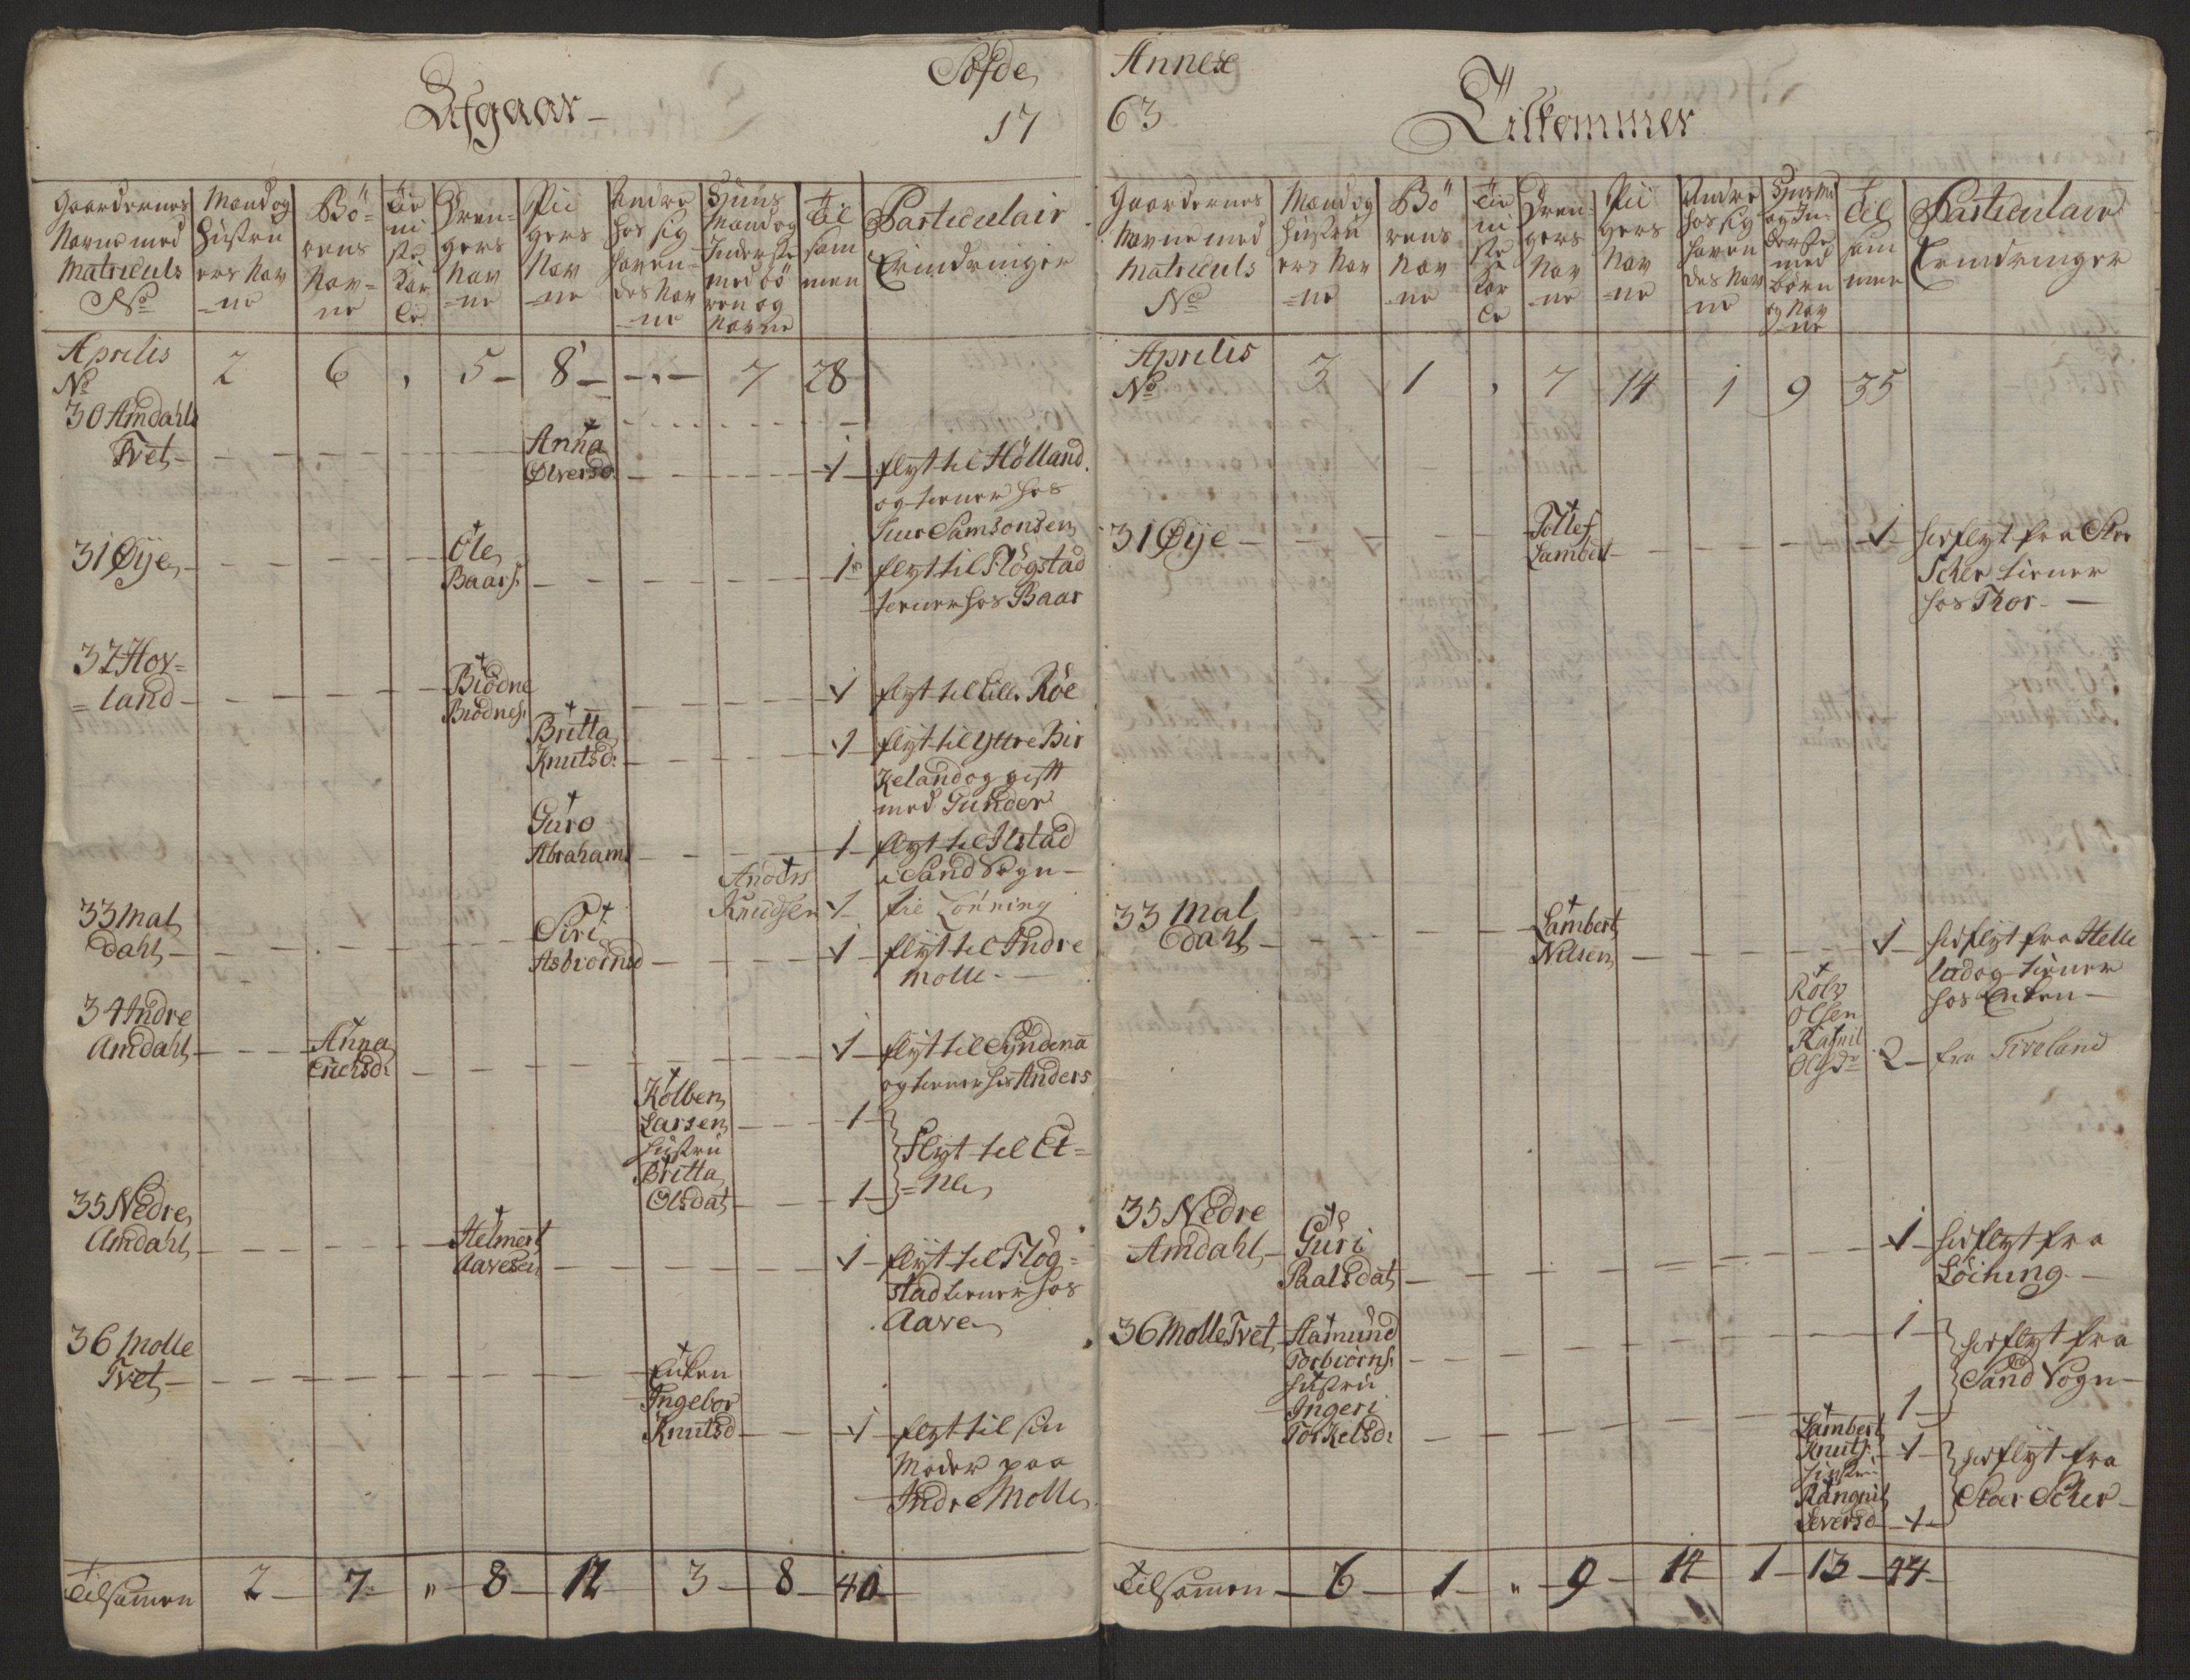 Søfde
Afgaar
17
Gaardernes
Navne med
Matriculs
No
Mand og
Hustru
ers Nav
=ne
Bö=
rens
Nav=
ne
Tie
ni
ste
Kar
le
Dren=
gers
Nav
=ne
Pii
gers
Nav
=ne
Andre
hos sig
haven=
des Nav
=ne
Huus
Mænd og
Inderste
med bö
ren og
Navne
Til
sam
men
Particulair
Erindringer
Aprilis
No
2 6 5 8 7 28
30 Amdahls
Tvet
Anna
Olversd
1
flyt til Hölland
og tiener hos
Siur Samsonsen
31 Øije
Ole
Baars.
1
flyt til Flögstad
tiener hos Baar
32 Hov=
=land
Biödne
Biödnes.
1
flyt til Lille Röe
Britta
Knutsd:
1
flyt til Yttre Bir
Keland og gift
med Gunder
Guro
Abrahams
1
flyt til Ilstad
i Sand Sogn
Anders
Knudsen
1
til Lönning
33 Mal
dahl
Siri
Asbiörnsd
1
flyt til Indre
Molle
34 Indre
Amdahl
Anna
Ericksd:
1
flyt til Syndenaa
og tiener hos Anders
Kolben
Larsen
1
Hustru
Britta
Olsdat
1
Flyt til Et=
=ne
35 Nedre
Amdahl
Helmert
Aavesen
1
flyt til Flög=
stad tiener hos
Aave
36 Molle
Tvet
Enken
Ingebor
Knutsd
1
flyt til sin
Moder paa
Indre Molle
Tilsamen 2 7 " 8 12 3 8 40
Annexe
63
Tilkommer
Gaardernes
Navne med
Matriculs
No
Mand og
Hustru
ers Nav
=ne
Bö
rens
Nav
ne
Tie
ni
ste
Kar
le
Dren=
gers
Nav
=ne
Pii
gers
Nav
=ne
Andre
hos sig
haven
des Nav
ne
Huus Md
og In=
derste
med
börn
og Nav
ne
Til
sam
men
Particulair
Erindringer
Aprilis
No
3 1 7 14 1 9 35
31 Øije
Tollef
Lambert
1
hidflyt fra Stor
Scher tiener
hos Thor
33 Mal
dahl
Lambert
Nilsen
1
hidflyt fra Helle
lad og tiener
hos Enken
Rolv
Olsen
Ragnil
Olsdr
2
fra Tiveland
35 Nedre
Amdahl
Guri
Paalsdat
1
hidflyt fra
Löining
36 Molle Tvet
Aamund
Torbiörns.
1
Hustru
Ingeri
Torkelsd:
1
hidflyt fra
Sand Sogn
Lambert
Knuts.
1
Hustru
Rangnil
Seversd
1
hidflyt fra
Stoer Scher
Tilsamen 6 1 " 9 14 1 13 44